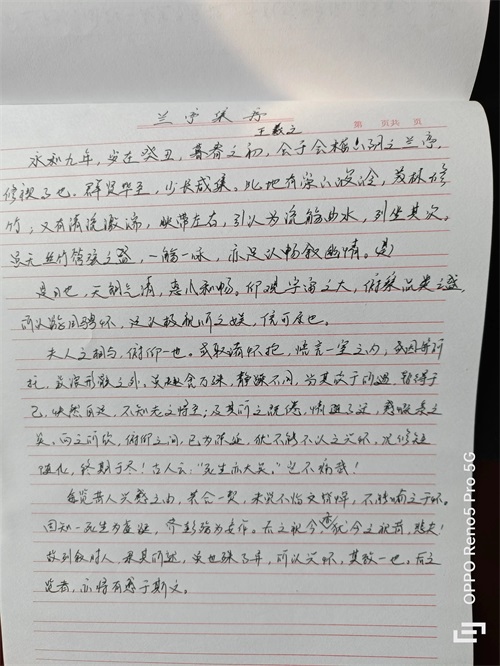 兰亭集序
第 页共 页
王羲之
永和九年，岁在癸丑，暮春之初，会于会稽山阴之兰亭，
修禊事也。群贤毕至，少长咸集。此地有崇山峻岭，茂林修
竹；又有清流激湍，映带左右，引以为流觞曲水，列坐其次。
虽无丝竹管弦之盛，一觞一咏，亦足以畅叙幽情。
是日也，天朗气清，惠风和畅。仰观宇宙之大，俯察品类之盛，
所以游目骋怀，足以极视听之娱，信可乐也。
夫人之相与，俯仰一世。或取诸怀抱，悟言一室之内；或因寄所
托，放浪形骸之外。虽趣舍万殊，静躁不同，当其欣于所遇，暂得于
己，快然自足，不知老之将至；及其所之既倦，情随事迁，感慨系之
矣。向之所欣，俯仰之间，已为陈迹，犹不能不以之兴怀，况修短
随化，终期于尽！古人云："死生亦大矣。"岂不痛哉！
每览昔人兴感之由，若合一契，未尝不临文嗟悼，不能喻之于怀。
固知一死生为虚诞，齐彭殇为妄作。后之视今，亦犹今之视昔，悲夫！
故列叙时人，录其所述，虽世殊事异，所以兴怀，其致一也。后之
览者，亦将有感于斯文。
OPPO Reno5 Pro 5G